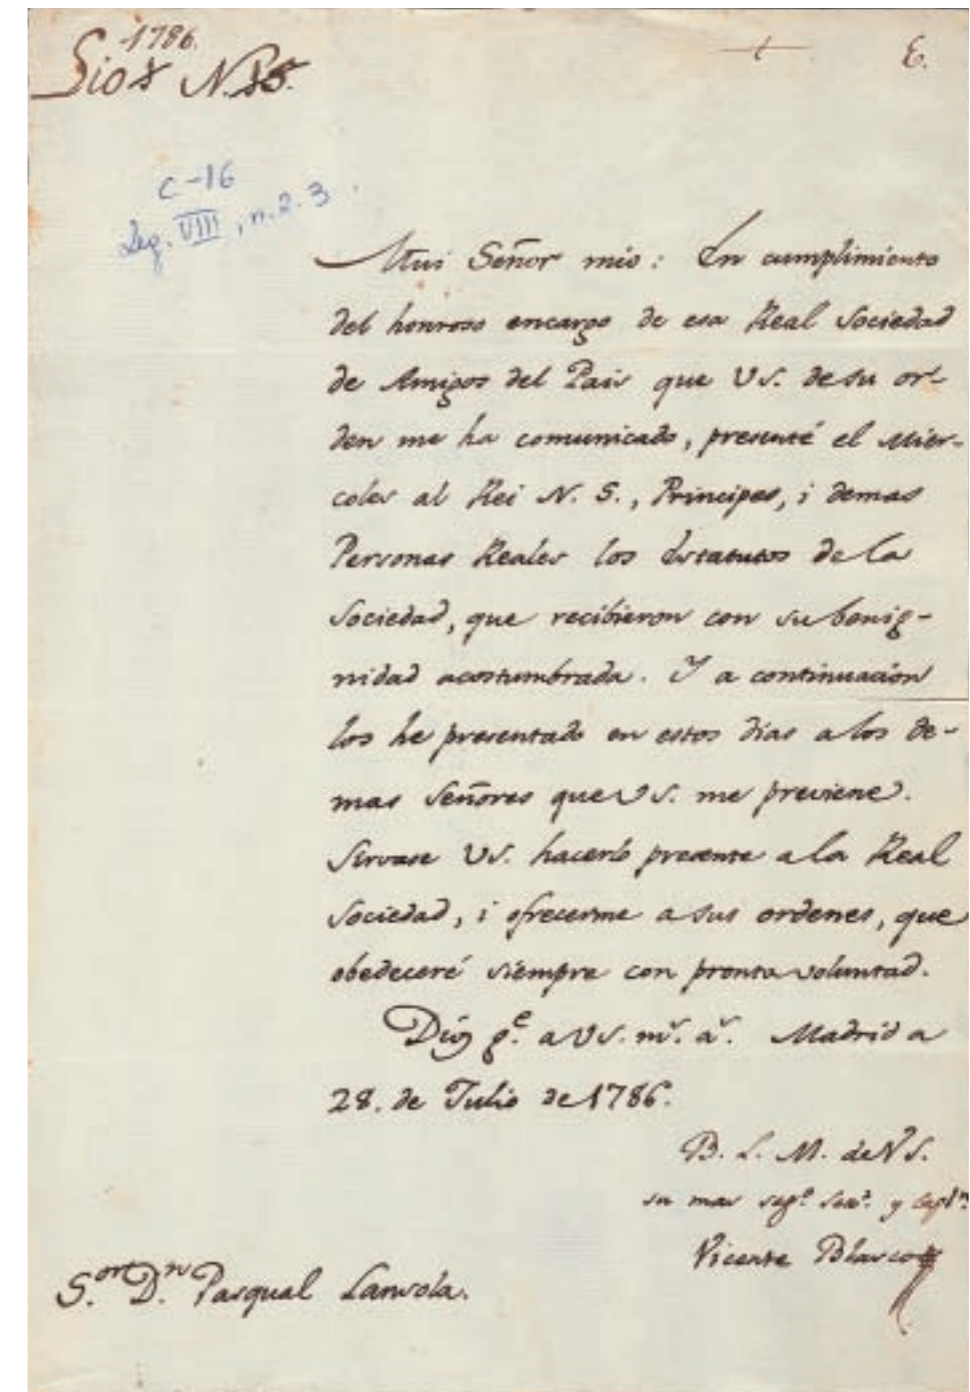 1786.
N.
E.
C-16
Leg. VIII, n. 2. 3
Mui Señor mio: En cumplimiento
del honroso encargo de esa Real Sociedad
de Amigos del Pais que VS. de su or-
den me ha comunicado, presenté el Mier-
coles al Rei N. S., Principes, i demas
Personas Reales los Estatutos de la
Sociedad, que recibieron con su benig-
nidad acostumbrada. Y a continuacion
los he presentado en estos dias a los de-
mas Señores que VS. me previene.
Sirvase VS. hacerlo presente a la Real
Sociedad, i ofrecerme a sus ordenes, que
obedeceré siempre con pronta voluntad.
Dios g.e a VS. m.s a.s Madrid a
28. de Julio de 1786.
B. L. M. de VS.
su mas seg.o y
Vicente Blasco
S.or D.n Pasqual Lansola.